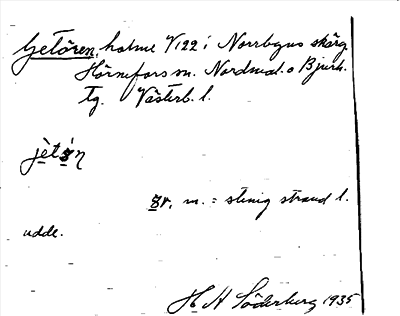 Getören, holme V 122 i Norrbyns skärg.
Hörnefors sn. Nordmal. o Bjurh.
tg. Västerb. l.
jètǿn
ør, m. = stenig strand l.
udde.
H H Söderberg 1935